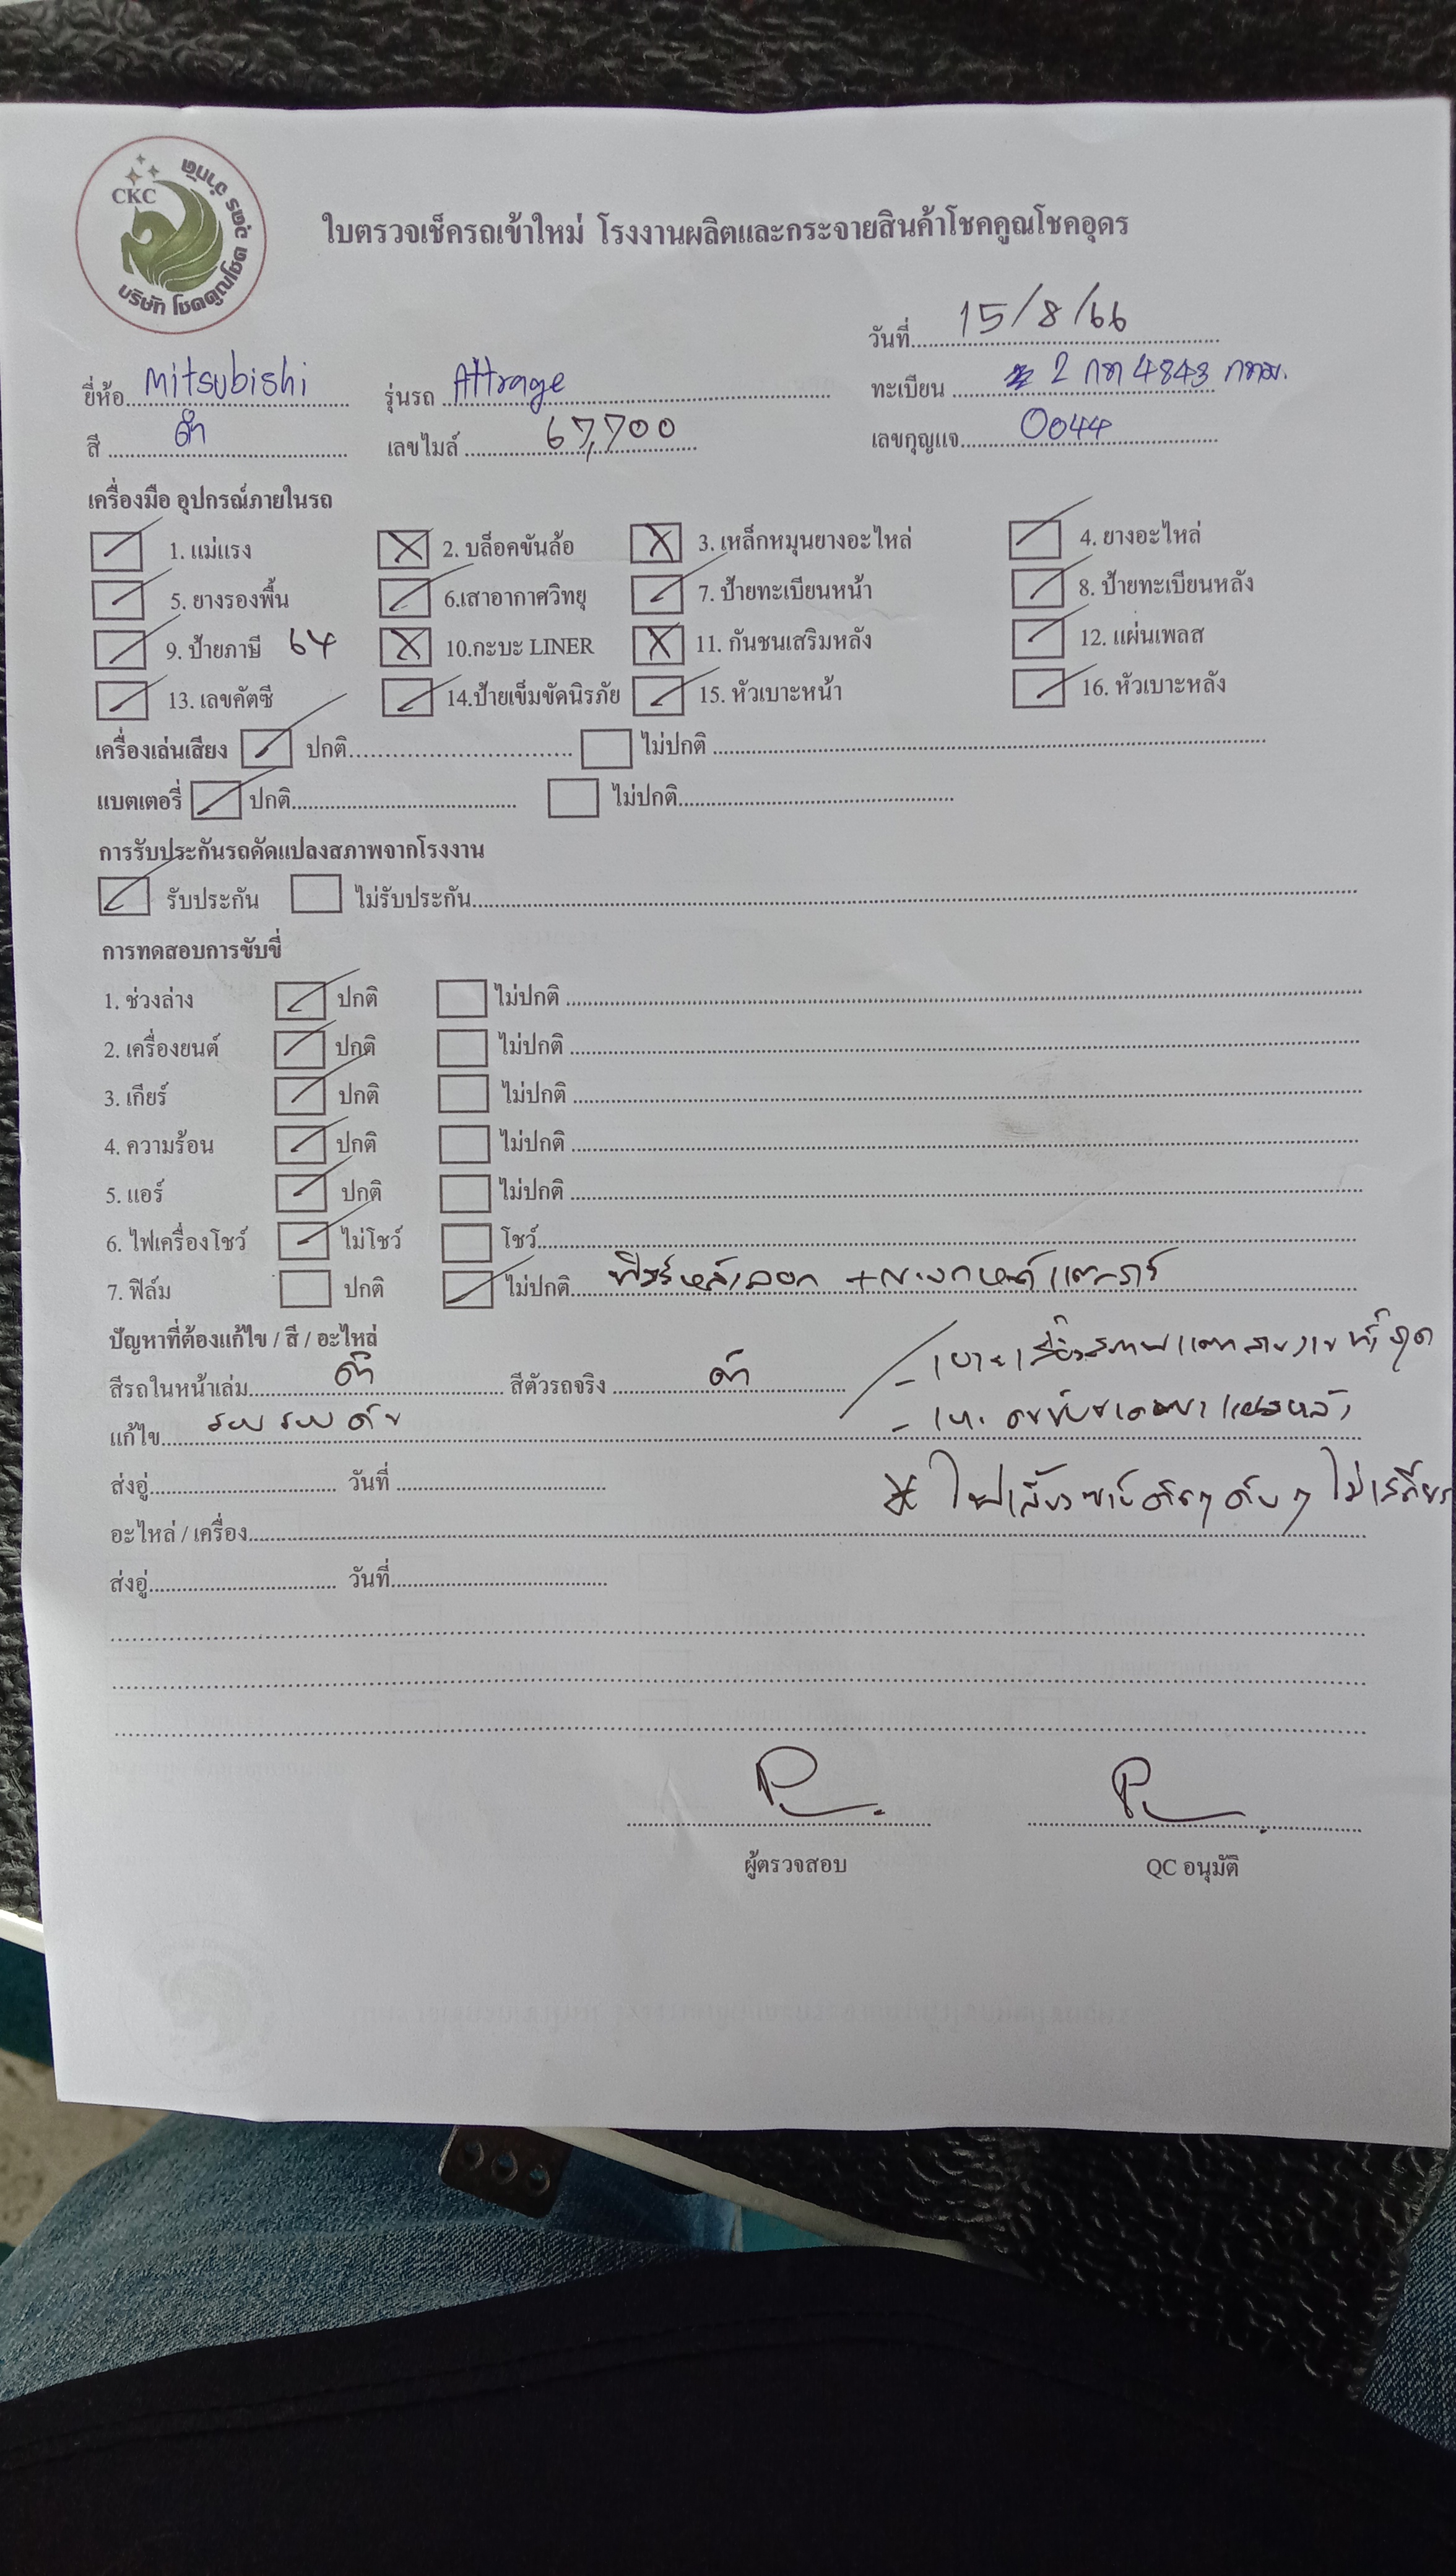 CKC
บริษัท โชคคูณโชค ตระ จำกัด
ใบตรวจเช็ครถเข้าใหม่ โรงงานผลิตและกระจายสินค้าโชคคูณโชคอุดร
วันที่ 15/8/66
ยี่ห้อ Mitsubishi รุ่นรถ Attrage ทะเบียน 2 กต 4843 กทม.
สี ดำ เลขไมล์ 67,700 เลขกุญแจ 0044
เครื่องมือ อุปกรณ์ภายในรถ
1. แม่แรง 2. บล็อคขันล้อ 3. เหล็กหมุนยางอะไหล่ 4. ยางอะไหล่
5. ยางรองพื้น 6.เสาอากาศวิทยุ 7. ป้ายทะเบียนหน้า 8. ป้ายทะเบียนหลัง
9. ป้ายภาษี 64 10.กะบะ LINER 11. กันชนเสริมหลัง 12. แผ่นเพลส
13. เลขคัตซี 14.ป้ายเข็มขัดนิรภัย 15. หัวเบาะหน้า 16. หัวเบาะหลัง
เครื่องเล่นเสียง ปกติ ไม่ปกติ
แบตเตอรี่ ปกติ ไม่ปกติ
การรับประกันรถดัดแปลงสภาพจากโรงงาน
รับประกัน ไม่รับประกัน
การทดสอบการขับขี่
1. ช่วงล่าง ปกติ ไม่ปกติ
2. เครื่องยนต์ ปกติ ไม่ปกติ
3. เกียร์ ปกติ ไม่ปกติ
4. ความร้อน ปกติ ไม่ปกติ
5. แอร์ ปกติ ไม่ปกติ
6. ไฟเครื่องโชว์ ไม่โชว์ โชว์
7. ฟิล์ม ปกติ ไม่ปกติ
ปัญหาที่ต้องแก้ไข / สี / อะไหล่
สีรถในหน้าเล่ม ดำ สีตัวรถจริง ดำ
แก้ไข รอบ รอบ คัน
ส่งอู่ วันที่
* ไฟเลี้ยวซ้าย ติดๆ ดับๆ ไม่เสถียร
อะไหล่ / เครื่อง
ส่งอู่ วันที่
ผู้ตรวจสอบ QC อนุมัติ